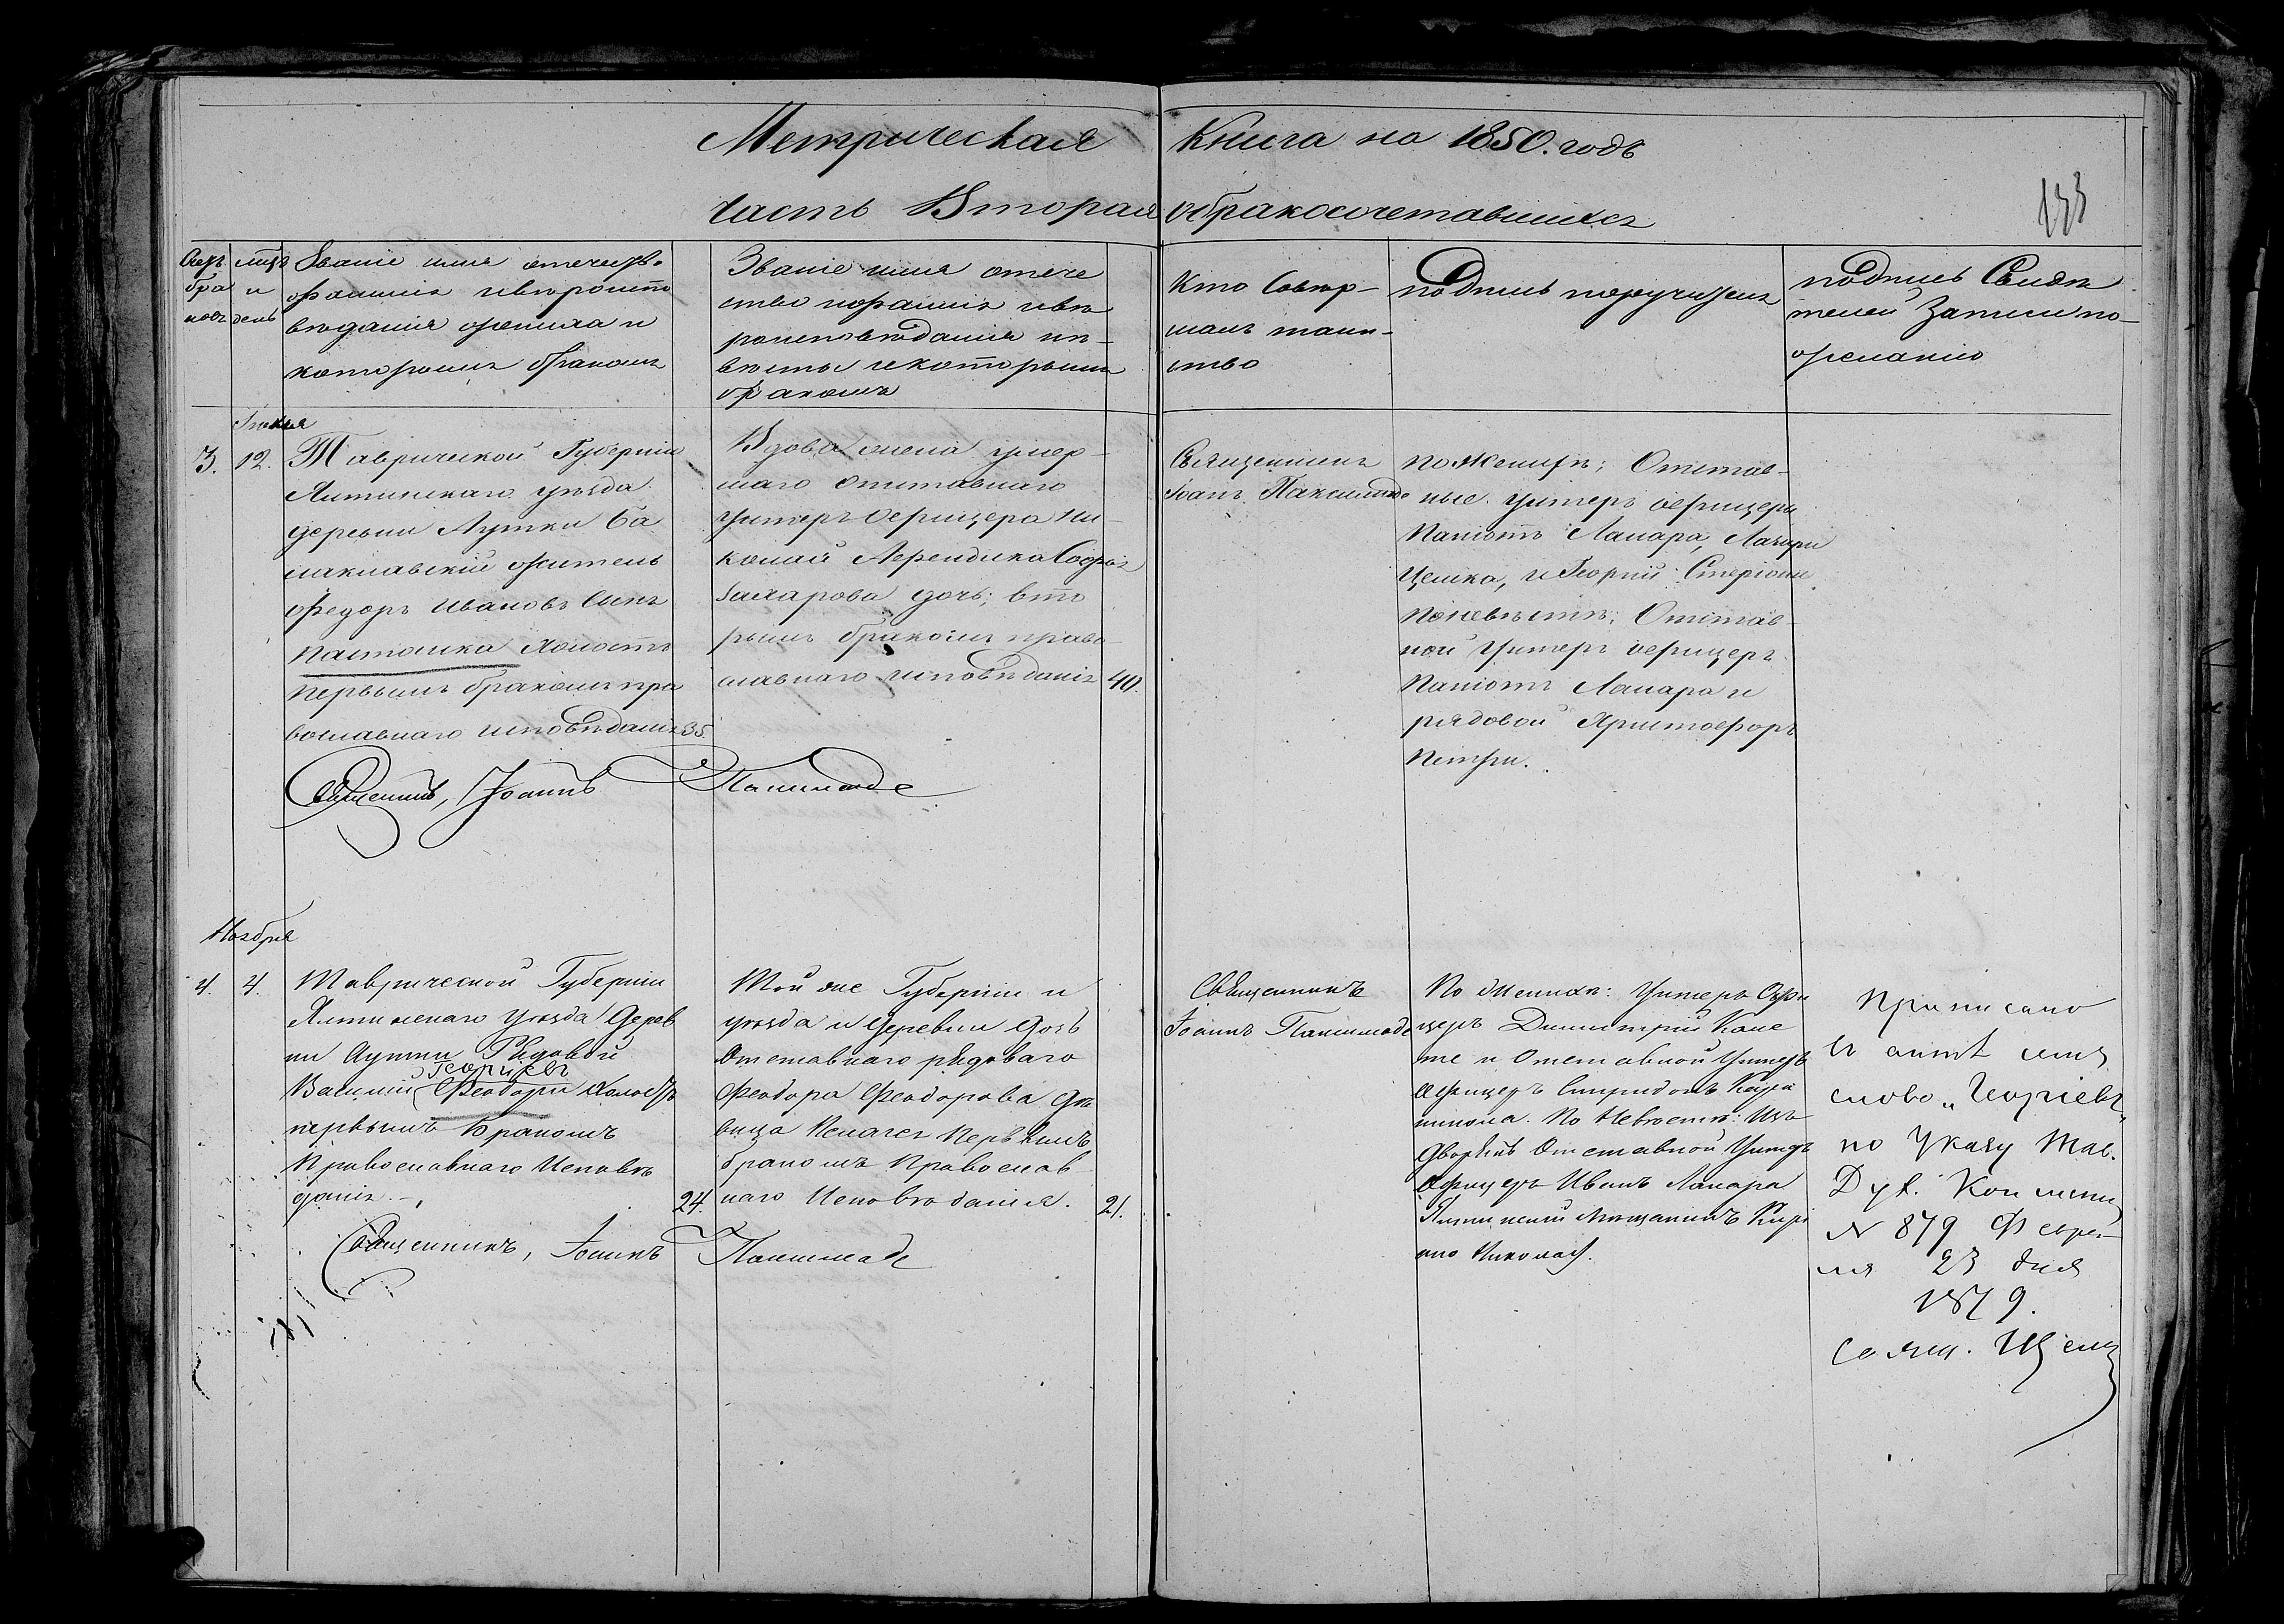 Метрическая Книга на 1850. годъ
часть Вторая обракосочетавшихся
133
Счетъ браковъ
мцъ и день
Званіе имя отечеств.
фамилія ивѣроиспо
вѣданія жениха и
которымъ бракомъ
Званіе имя отече
ство ифамилія ивѣ
роисповѣданія не-
вѣсты икоторымъ
бракомъ
Кто Совер-
шалъ таин-
ство
подпись поручителе
подпись Свидѣ
телей Записи по-
желанію
3.
12.
Таврической Губерніи
Ялтинскаго уѣзда
деревни Аутки Ба
лаклавскій житель
Федоръ Ивановъ Сынъ
Холостъ
первымъ бракомъ пра
вославнаго исповѣданія 35.
Вдова жена умер-
шаго отставнаго
унтеръ офицера Ни-
колай Софія
Захарова дочь; вто
рымъ бракомъ право-
славнаго исповѣданія 40.
Священникъ
Іоанъ
по Женихѣ; Отстав-
ные унтеръ офицеры
Паніотъ Лапара,
и Георгій
Поневѣстѣ; Отстав-
ной унтеръ офицеръ
Паніотъ Лапара и
рядовой Христофоръ
Петри.
Священникъ, Іоаннъ
Ноября
4.
4.
Таврической Губерніи
Ялтинскаго уѣзда Дерев
ни Аутки Рядовой
Георгіевъ
Василий Феодори Холостъ
первымъ Бракомъ
Православнаго Исповѣ
данія. 24.
Той же Губерніи и
уѣзда и Деревни дочь
Отставнаго рядоваго
Феодора Феодорова дѣ
вица Пелагея Первымъ
бракомъ Православ
наго Исповѣданія. 21.
Священникъ
Іоаннъ
По Женихѣ: Унтеръ Офи
церъ Димитрій
и Отставной Унтеръ
Офицеръ Спиридонъ
По Невѣстѣ: Изъ
Дворянъ Отставной Унтеръ
Офицеръ Иванъ Лапара
Ялтинскій Мѣщанинъ
Николай.
Приписано
слово „Георгіевъ„
по Указу Тав.
Дух. Консисторіи
№ 879 Февра-
ля 23 дня
1879.
Свящ.
Священникъ, Іоаннъ